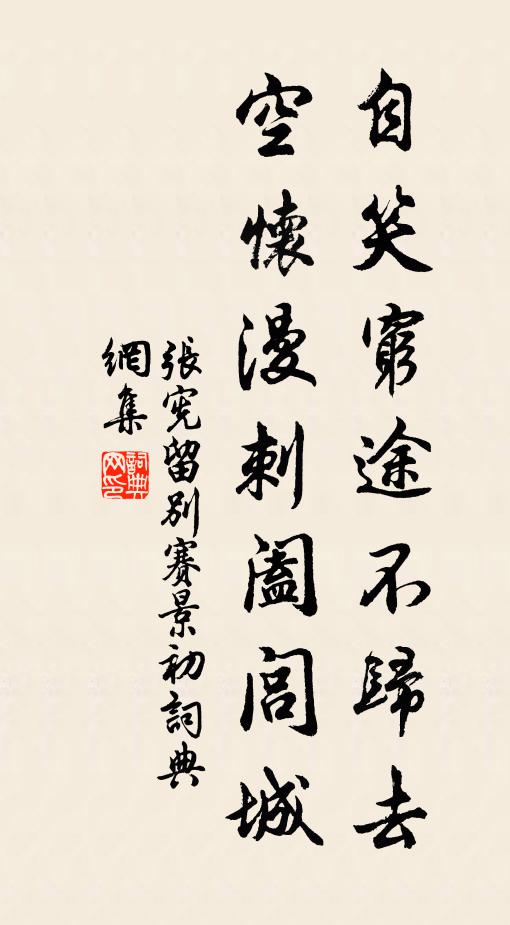 自笑窮途不歸去
空懷漫刺闔閭城
張宪留別賽景初詞典
網集
詞典
网印